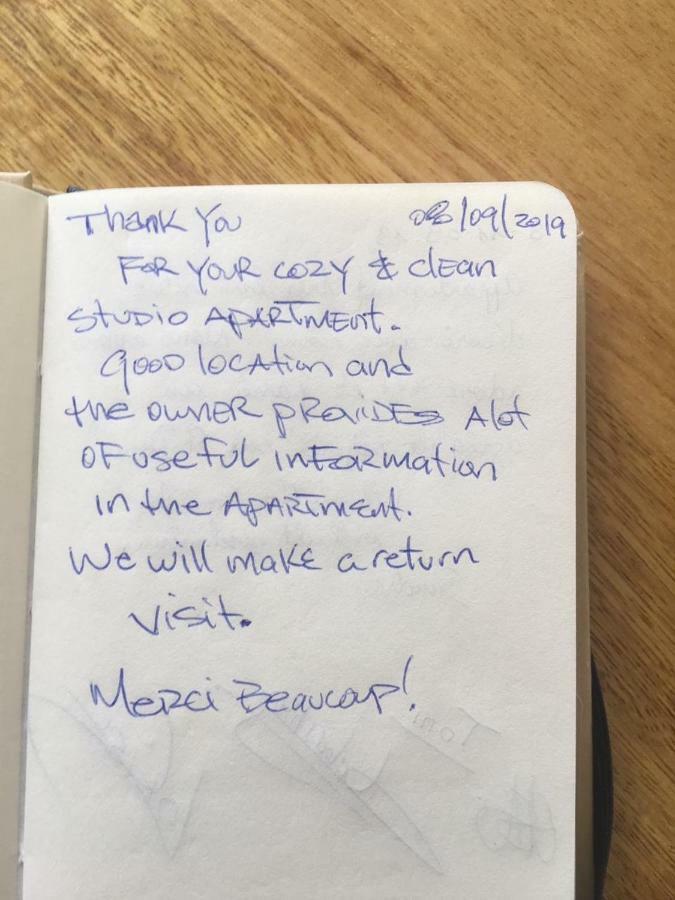 Thank You 08/09/2019
For your cozy & clean
studio apartment.
Good location and
the owner provides alot
of useful information
in the apartment.
We will make a return
visit.
Merci Beaucoup!
Toni